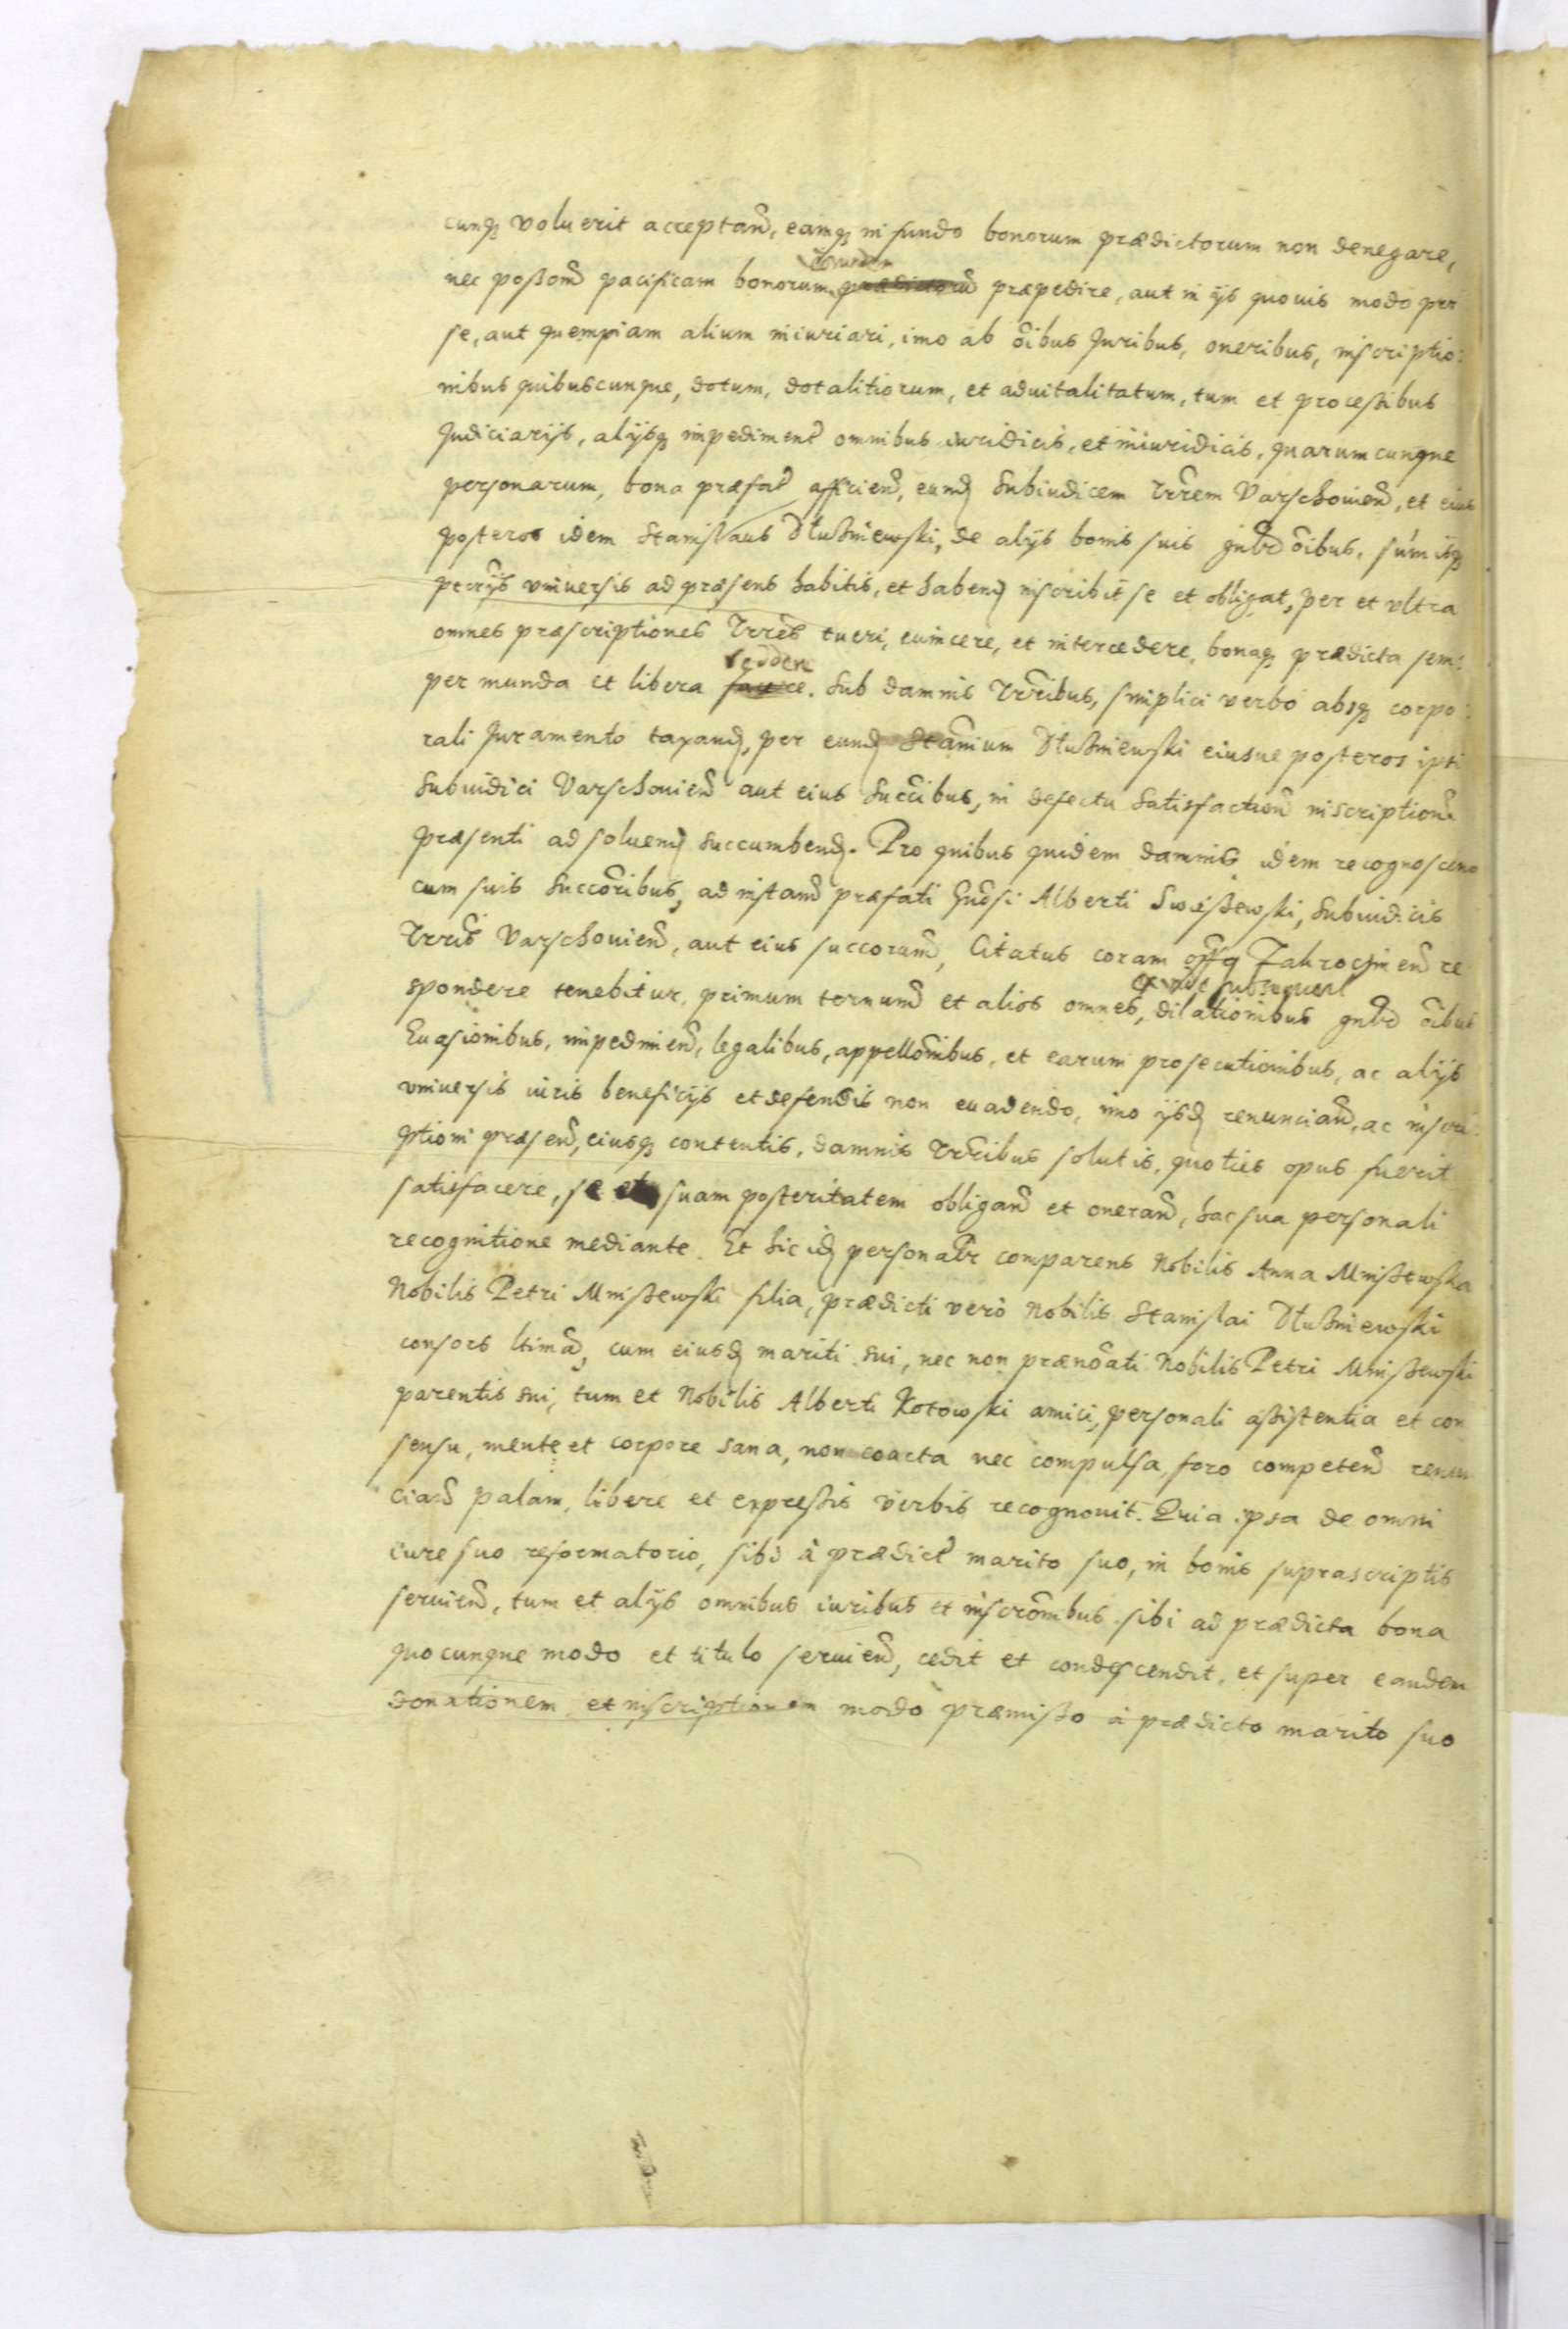 cunq voluerit acceptand, eamq in fundo bonorum prædictorum non denegare,
nec possom pacificam bonorum eorundem prædictoru præpedire, aut in ijs quovis modo per
se, aut quempiam alium iniuriari, imo ab oibus Juribus, oneribus, inscriptio:
nibus quibuscunque, dotum, dotalitiorum, et advitalitatum, tum et processibus
Judiciarijs, alijsq impediment omnibus iuridicis, et iniuridicis, quarumcunque
personarum, bona præfat afficien, eund Subiudicem Trrem Varschovien, et eius
posteros idem Stanislaus Dłużniewski, de alijs bonis suis gnlr oibus, sumisq
pecuijs vniversis ad præsens habitis, et habend inscribit se et obligat, per et vltra
omnes præscriptiones Trres tueri, evincere, et intercedere, bonaq prædicta sem:
per munda et libera facere reddere. Sub damnis Trribus, simplici verbo absq corpo:
rali Juramento taxand, per eund Stanium Dłużniewski eiusue posteros ipsi
Subiudici Varschovien aut eius Succibus, in defectu Satisfaction inscription
præsenti ad soluend succumbend. Pro quibus quidem damnis idem recognoscens
cum suis Succoribus, ad instan præfati Gnosi Alberti Swiészewski, Subiudicis
Trris Varschovien, aut eius succorum, Citatus coram offo Zakroczimen re
spondere tenebitur, primum ternum et alios omnes, exinde subsequen dilationibus gnlr oibus
Evasionibus, impedimen, legalibus, appellonibus, et earum prosecutionibus, ac alijs
vniversis iuris beneficijs et defensis non evadendo, imo ijsd renuncian, ac inscri:
ptioni præsen, eiusq contentis, damnis Trribus solutis, quoties opus fuerit
satisfacere, se et suam posteritatem obligand et onerand, hac sua personali
recognitione mediante. Et hic id personalr comparens Nobilis Anna Mniszewska
Nobilis Petri Mniszewski filia, prædicti verò Nobilis Stanislai Dłużniewski
consors ltima, cum eiusd mariti sui, nec non prænoati Nobilis Petri Mniszewski
parentis sui, tum et Nobilis Alberti Kotowski amici, personali assistentia et con
sensu, mente et corpore sana, non coacta nec compulsa, foro competen renun
ciand palam, libere et expressis verbis recognovit. Quia ipsa de omni
iure suo reformatorio, sibi à prædict marito suo, in bonis suprascriptis
servien, tum et alijs omnibus iuribus et inscronibus sibi ad prædicta bona
quocunque modo et titulo servien, cedit et condescendit, et super eandem
donationem et inscriptionem modo præmisso à prædicto marito suo